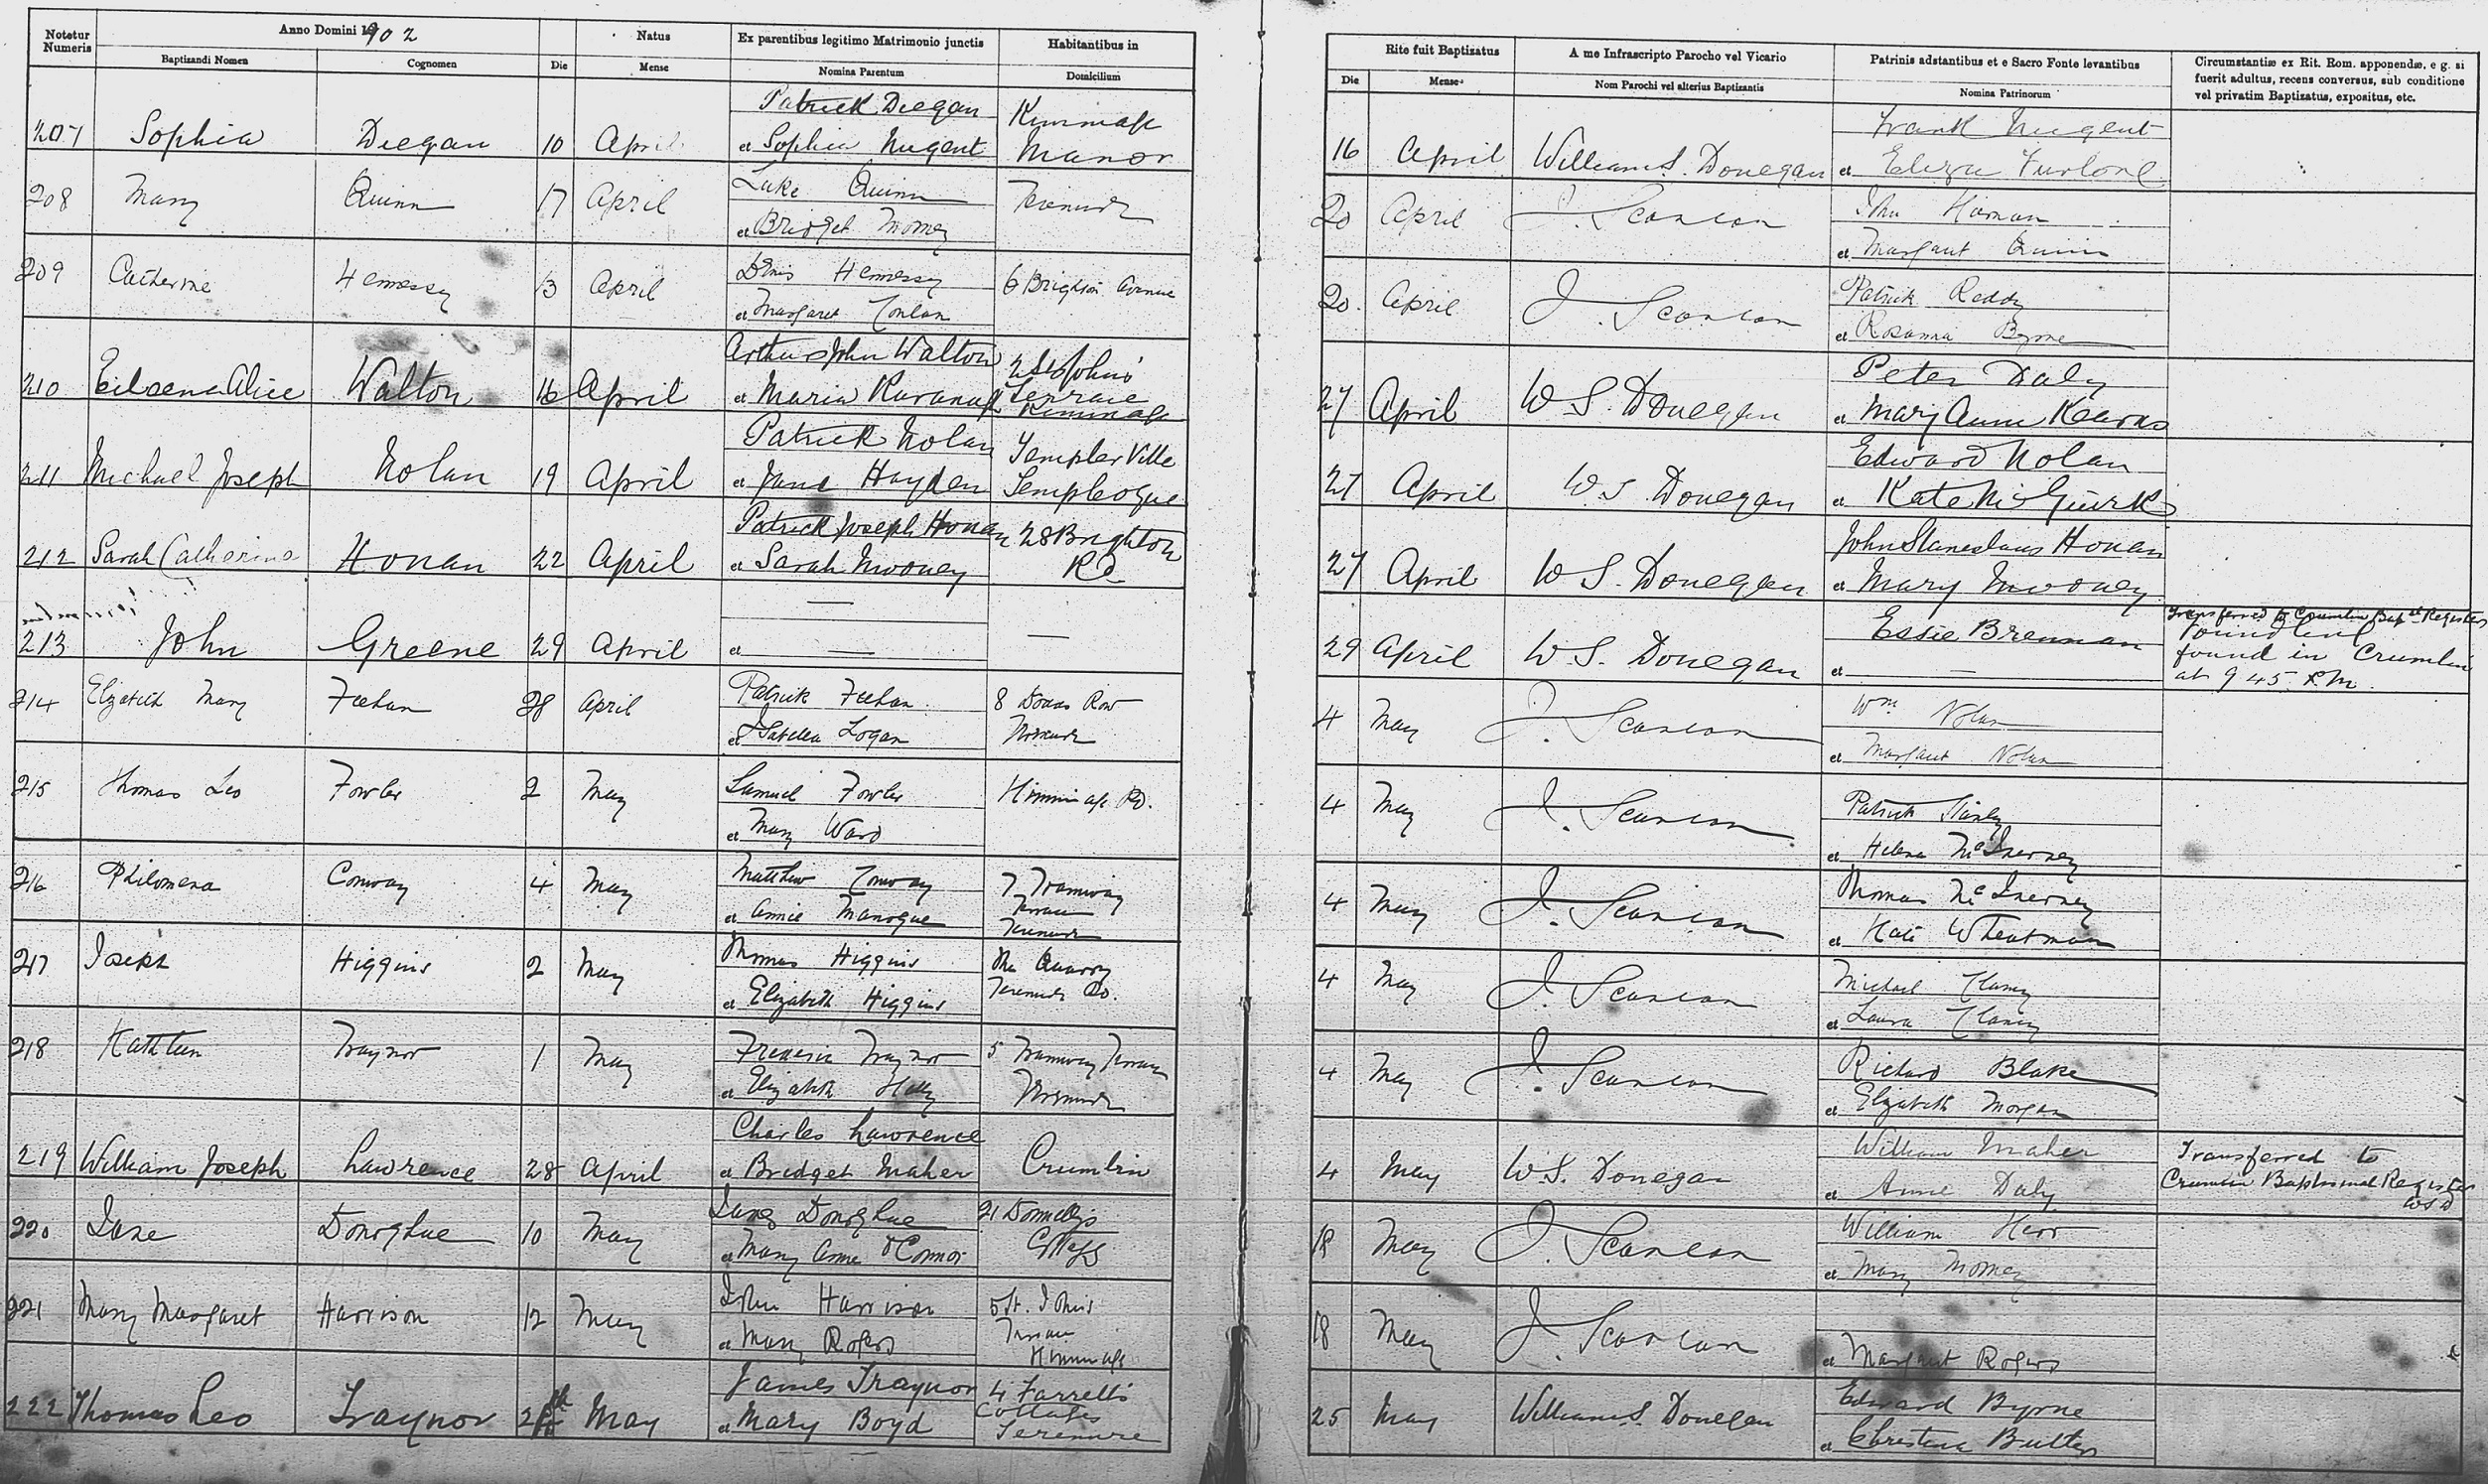 Notetur Numeris
Anno Domini 1902
Baptizandi Nomen
Cognomen
Die
Natus
Mense
Ex parentibus legitimo Matrimonio junctis
Nomina Parentum
Habitantibus in
Domicilium
Rite fuit Baptizatus
Die
Mense
A me Infrascripto Parocho vel Vicario
Nom Parochi vel alterius Baptizantis
Patrinis adstantibus et e Sacro Fonte levantibus
Nomina Patrinorum
Circumstantiæ ex Rit. Rom. apponendæ, e g. si
fuerit adultus, recens conversus, sub conditione
vel privatim Baptizatus, expositus, etc.
207 Sophia Deegan 10 April Patrick Deegan et Sophia Nugent Kimmage Manor 16 April William S. Donegan Frank Nugent et Eliza Furlong
208 Mary Quinn 17 April Luke Quinn et Bridget Mooney Terenure 20 April J. Scanlan John et Margaret Quinn
209 Catherine Hennessy 13 April Denis Hennessy et Margaret Conlan 6 Brighton Avenue 20 April J. Scanlan Patrick Reddy et Rosanna Byrne
210 Eileena Alice Walton 16 April Arthur John Walton et Maria Kavanagh 2 St John's Terrace Kimmage 27 April W S. Donegan Peter Daly et Mary Anne Kearns
211 Michael Joseph Nolan 19 April Patrick Nolan et Jane Hayden Templer Ville Templeogue 27 April W S Donegan Edward Nolan et Kate McGuirk
212 Sarah Catherine Honan 22 April Patrick Joseph Honan et Sarah Mooney 28 Brighton Rd 27 April W S. Donegan John Stanislaus Honan et Mary Mooney
Crumlin
213 John Greene 29 April — et — — 29 April W S. Donegan Essie Brennan et — Transferred to Crumlin Bapl Register
Foundling
found in Crumlin
at 9 45 P.M.
214 Elizabeth Mary Feehan 28 April Patrick Feehan et Isabella Logan 8 Row Terenure 4 May J. Scanlan Wm Nolan et Margaret Nolan
215 Thomas Leo Fowler 2 May Samuel Fowler et Mary Ward Kimmage Rd. 4 May J. Scanlan Patrick et Helena McInerney
216 Philomena Conway 4 May Matthew Conway et Annie Manogue 7 Tramway Terrace Terenure 4 May J. Scanlan Thomas McInerney et Kate Wheatman
217 Joseph Higgins 2 May Thomas Higgins et Elizabeth Higgins The Quarry Terenure Rd. 4 May J. Scanlan Michael Clancy et Laura Clancy
218 Kathleen Traynor 1 May Frederic Traynor et Elizabeth 5 Tramway Terrace Terenure 4 May J. Scanlan Richard Blake et Elizabeth Morgan
219 William Joseph Lawrence 28 April Charles Lawrence et Bridget Maher Crumlin 4 May W.S. Donegan William Maher et Annie Daly Transferred to
Crumlin Baptismal Register
WSD
220 Jane Donoghue 10 May James Donoghue et Mary Anne O'Connor 21 Donnelly's Cottages May J. Scanlan William Kerr et Mary Mooney
221 Mary Margaret Harrison 12 May John Harrison et Mary Rogers 5 St. John's Terrace Kimmage 18 May J. Scanlan et Margaret Rogers
222 Thomas Leo Traynor May James Traynor et Mary Boyd 4 Farrell's Cottages Terenure 25 May William S. Donegan Edward Byrne et Christina Butler